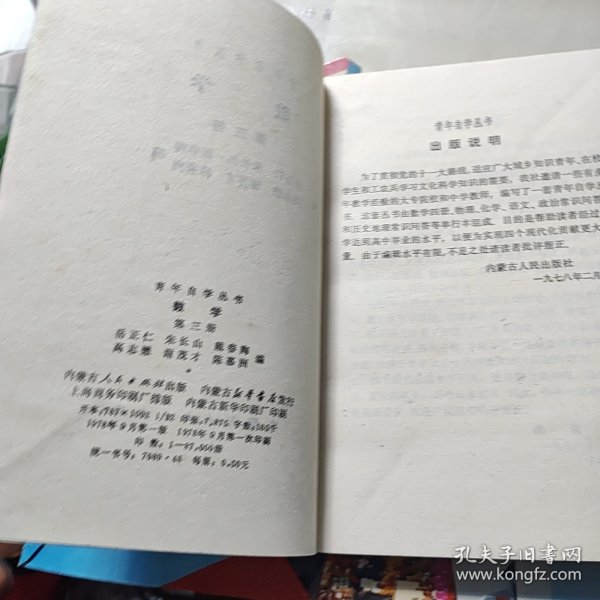 青年自学丛书
数学
第三册
岳正仁 朱长山 戴春陶
高志懋 谢茂才 陈嘉驹 编
内蒙古人民出版社出版 内蒙古新华书店发行
上海商务印刷厂排版 内蒙古新华印刷厂印刷
开本:787×1092 1/32 印张:7.875 字数:
1978年9月第一版 1978年9月第一次印刷
统一书号: 7089·
青年自学丛书
出版说明
为了贯彻党的十一大路线,适应广大城乡知识青年、在校
学生和工农兵学习文化科学知识的需要,我社邀请一些有多
年教学经验的大专院校和中学教师,编写了一套青年自学丛
书。这套丛书由数学四册、物理、化学、语文、政治常识问答
和历史地理常识问答等单行本组成。目的是帮助读者经过
学达到高中毕业的水平,以便为实现四个现代化贡献更大
量。由于编辑水平有限,不足之处请读者批评指正。
内蒙古人民出版社
一九七八年二月
孔夫子旧书网
www.kongfz.com